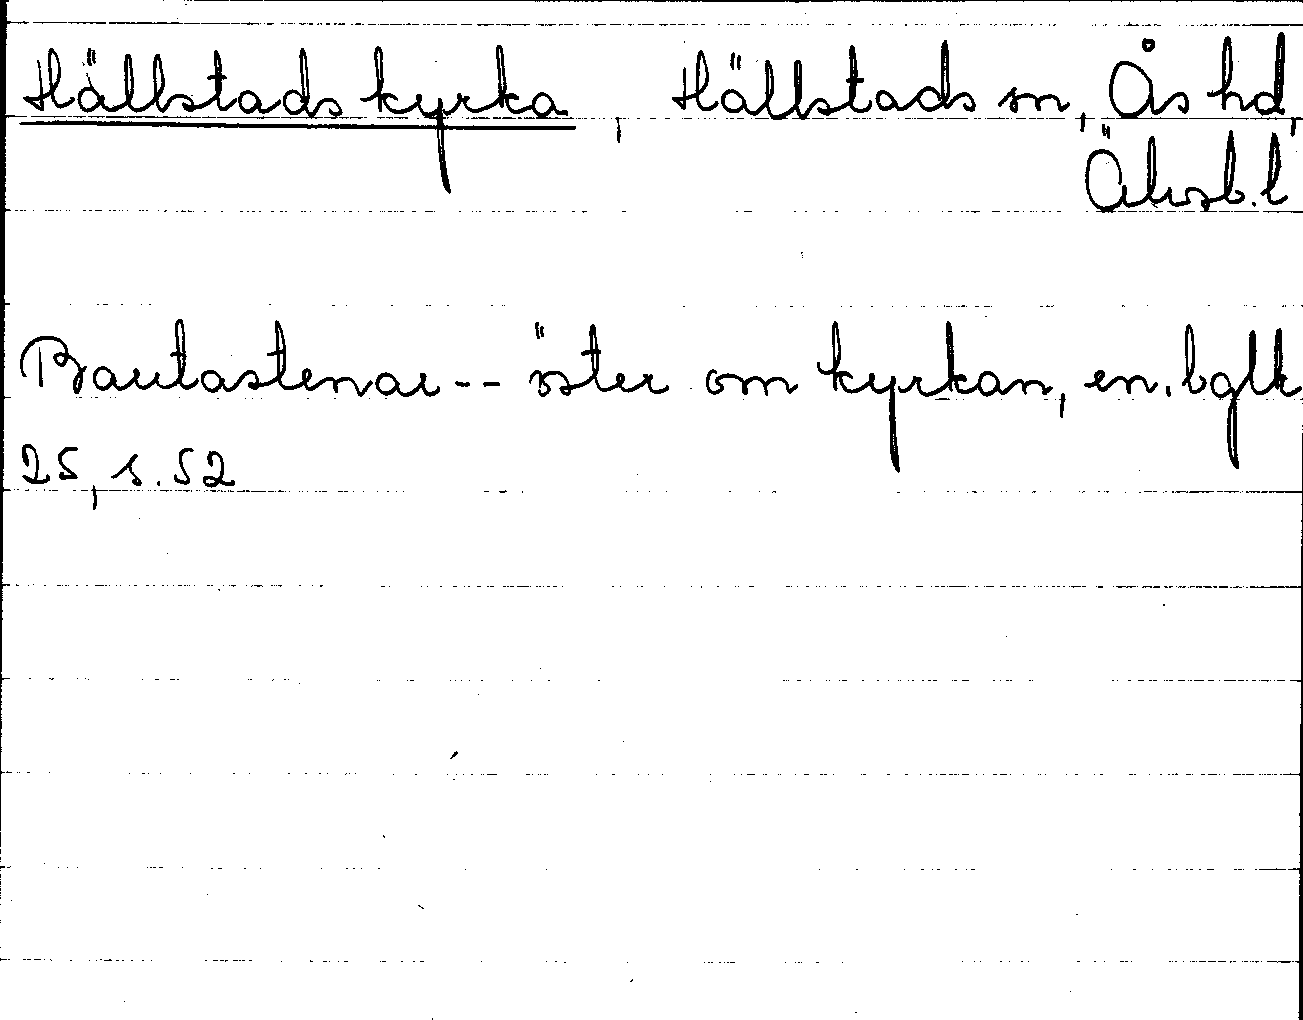 Hällstads kyrka, Hällstads sn, Ås hd,
Älvsb. l
Bautastenar -- öster om kyrkan, en. bglk
25, s. 52